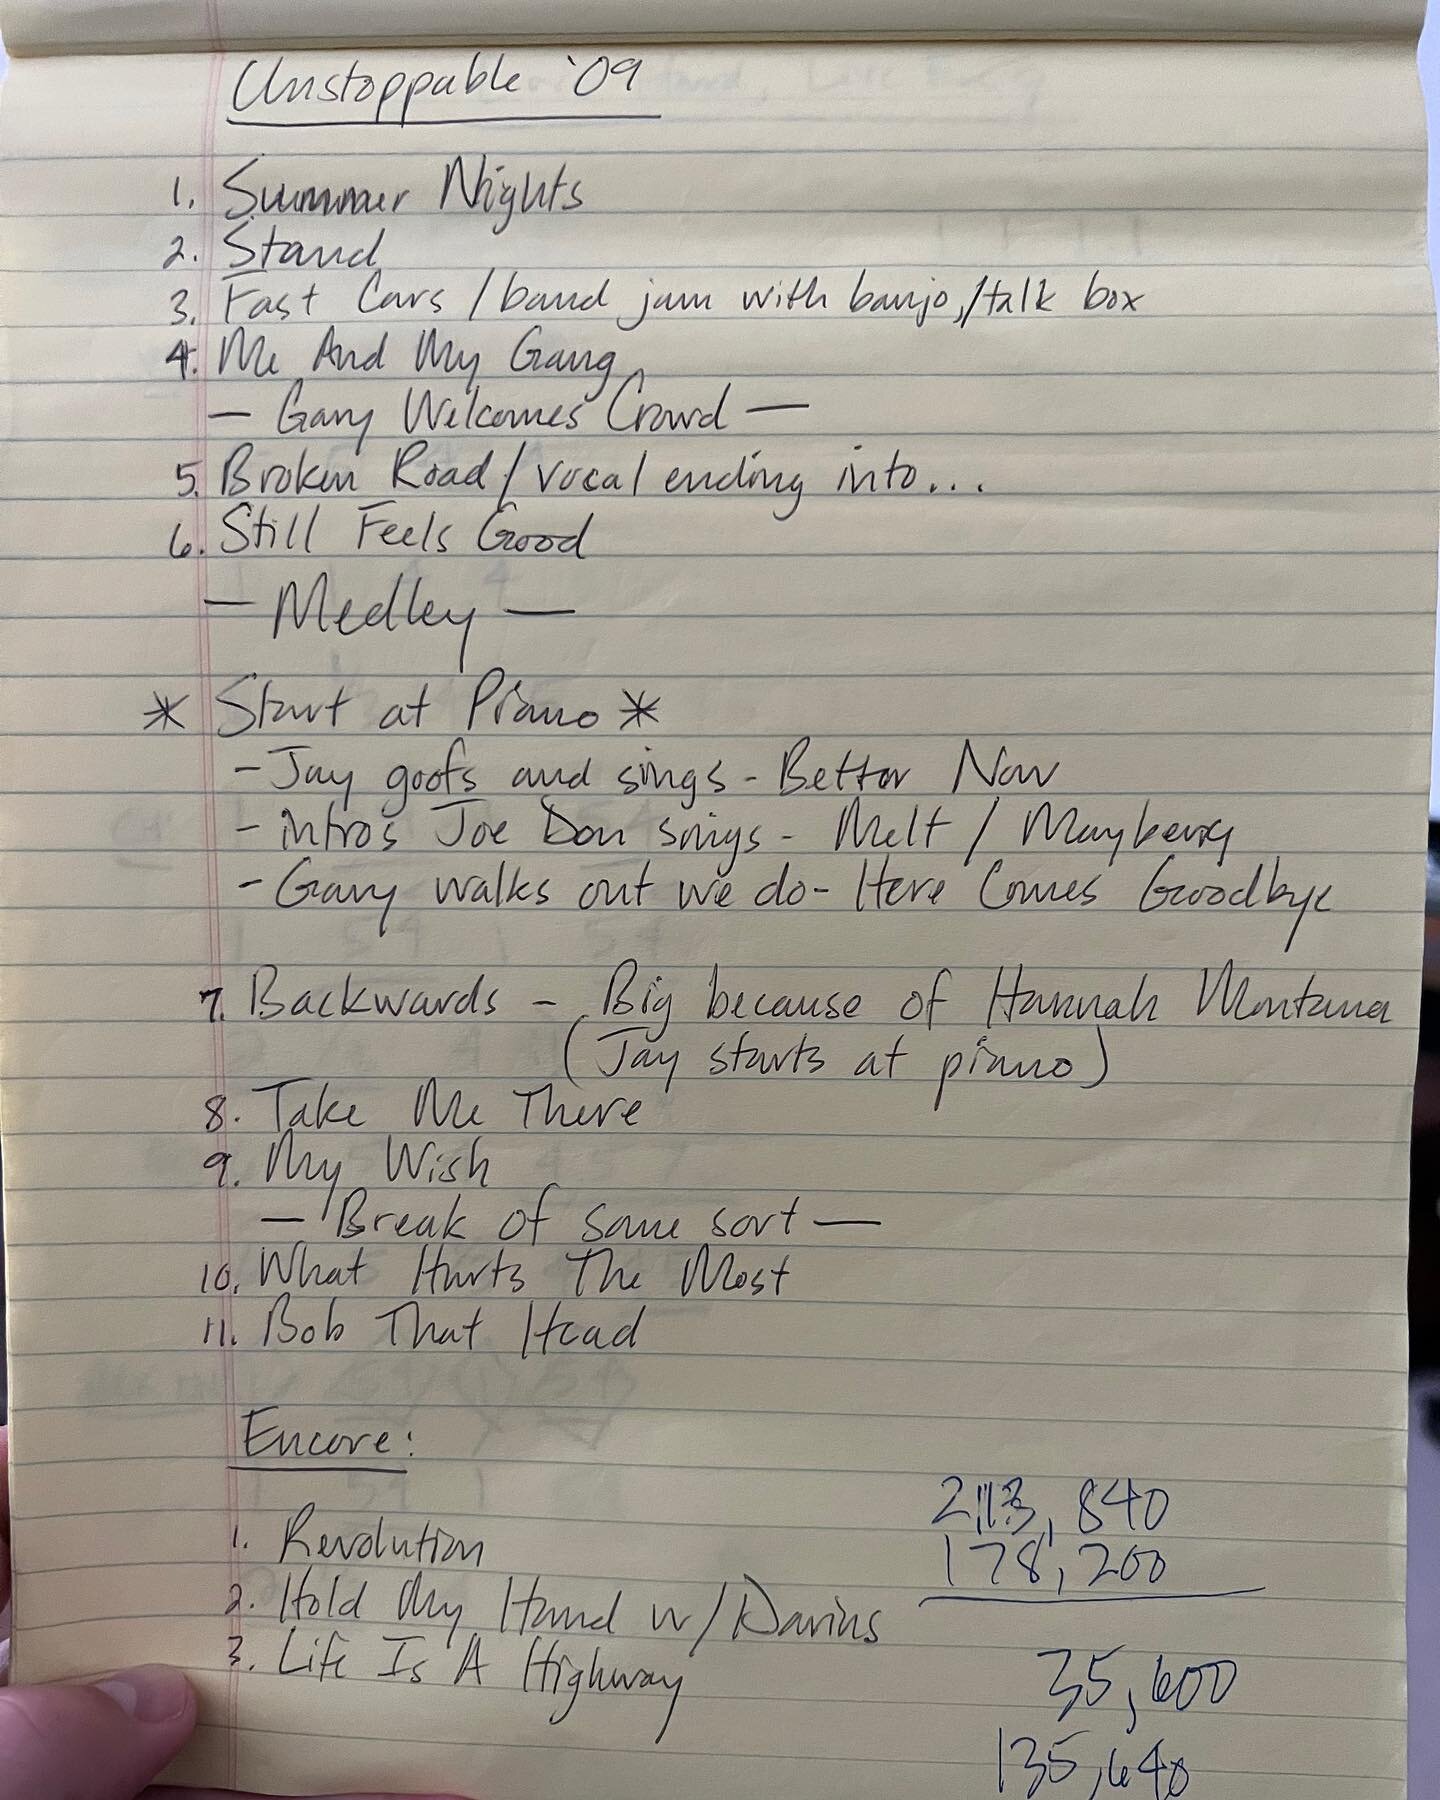 Unstoppable '09
1. Summer Nights
2. Stand
3. Fast Cars / band jam with banjo,/talk box
4. Me And My Gang
— Gary Welcomes Crowd —
5. Broken Road / vocal ending into...
6. Still Feels Good
— Medley —
* Start at Piano *
- Jay goofs and sings - Better Now
- intros Joe Don sings - Melt / Mayberry
- Gary walks out we do - Here Comes Goodbye
7. Backwards - Big because of Hannah Montana
(Jay starts at piano)
8. Take Me There
9. My Wish
— Break of some sort —
10. What Hurts The Most
11. Bob That Head
Encore:
1. Revolution
2. Hold My Hand w/Darius
3. Life Is A Highway
840
178,200
35,600
135,640